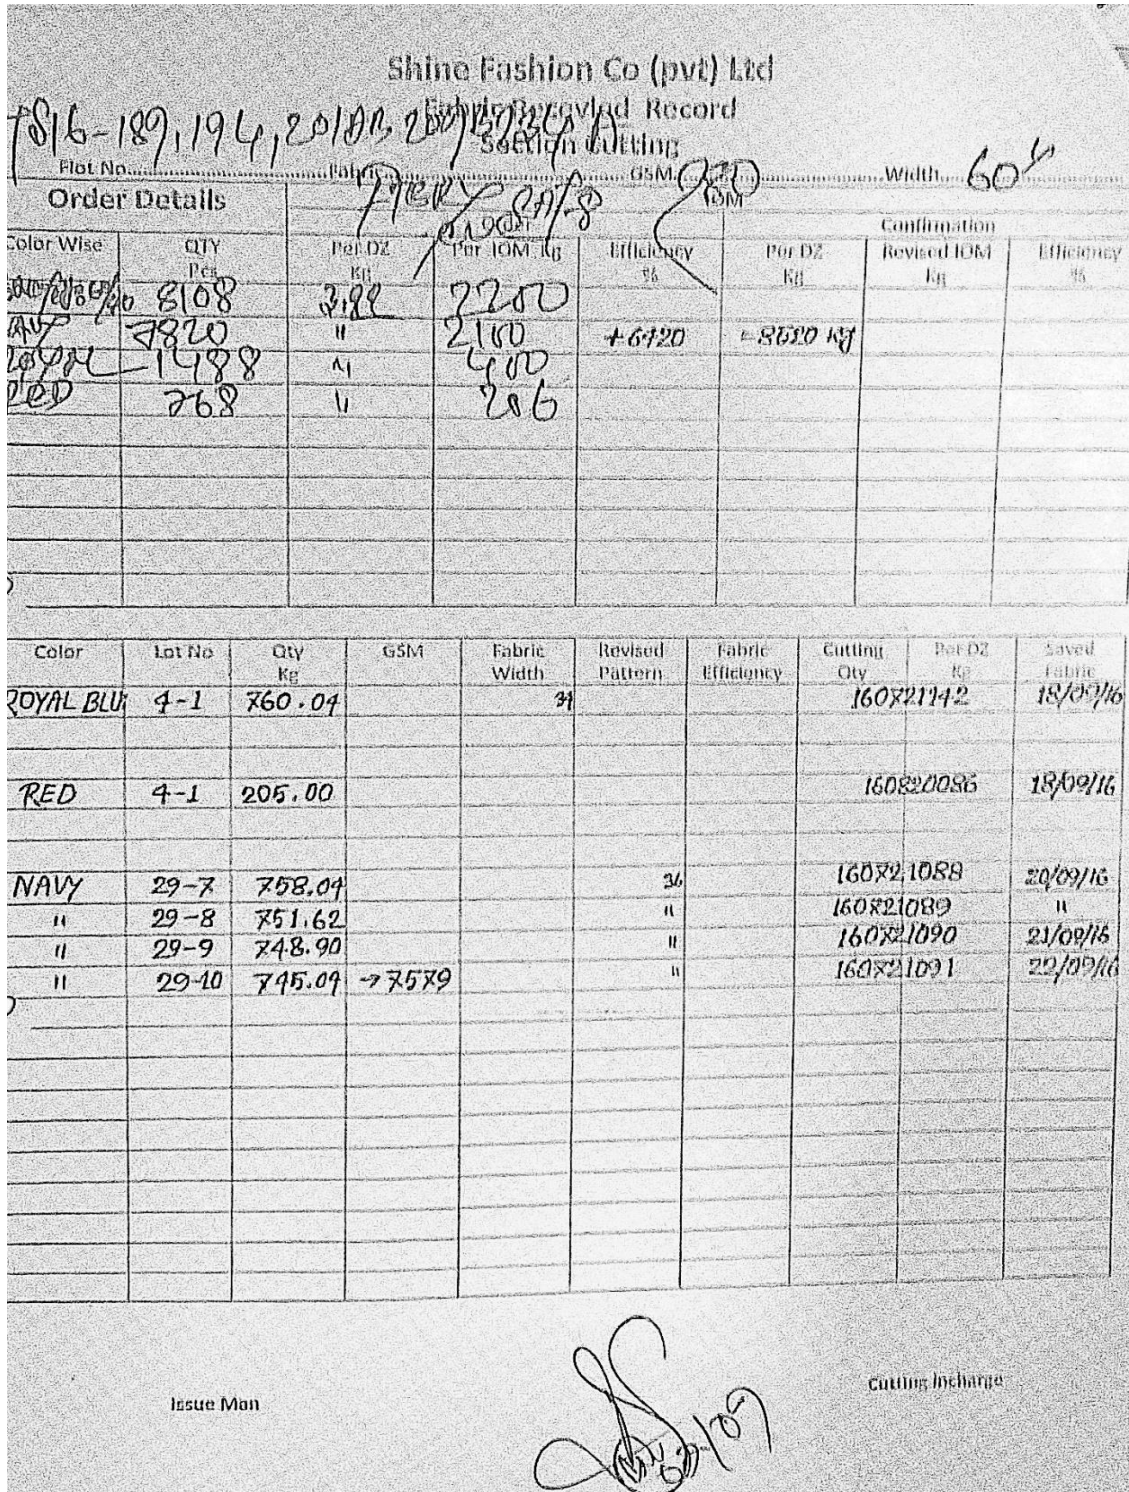 Shine Fashion Co (pvt) Ltd
Fabric Recevied Record
Section Cutting
Flot No. Fabric GSM 280 Width 60"
Order Details
Confirmation
Color Wise QTY Pcs Per DZ Kg Per IOM Kg Efficiency % Per DZ Kg Revised IOM Kg Efficiency %
8108 2200
7820 " 2100 +6420 =8620 Kg
1488 " 400
RED 768 " 206
Color Lot No Qty Kg GSM Fabric Width Revised Pattern Fabric Efficiency Cutting Qty Per DZ Kg Saved Fabric
ROYAL BLU 4-1 760.04 160721142 18/09/16
RED 4-1 205.00 160820086 18/09/16
NAVY 29-7 758.04 36 160721088 20/09/16
" 29-8 751.62 " 160721089 "
" 29-9 748.90 " 160721090 21/09/16
" 29-10 745.04 →7579 " 160721091 22/09/16
Issue Man
Cutting Incharge